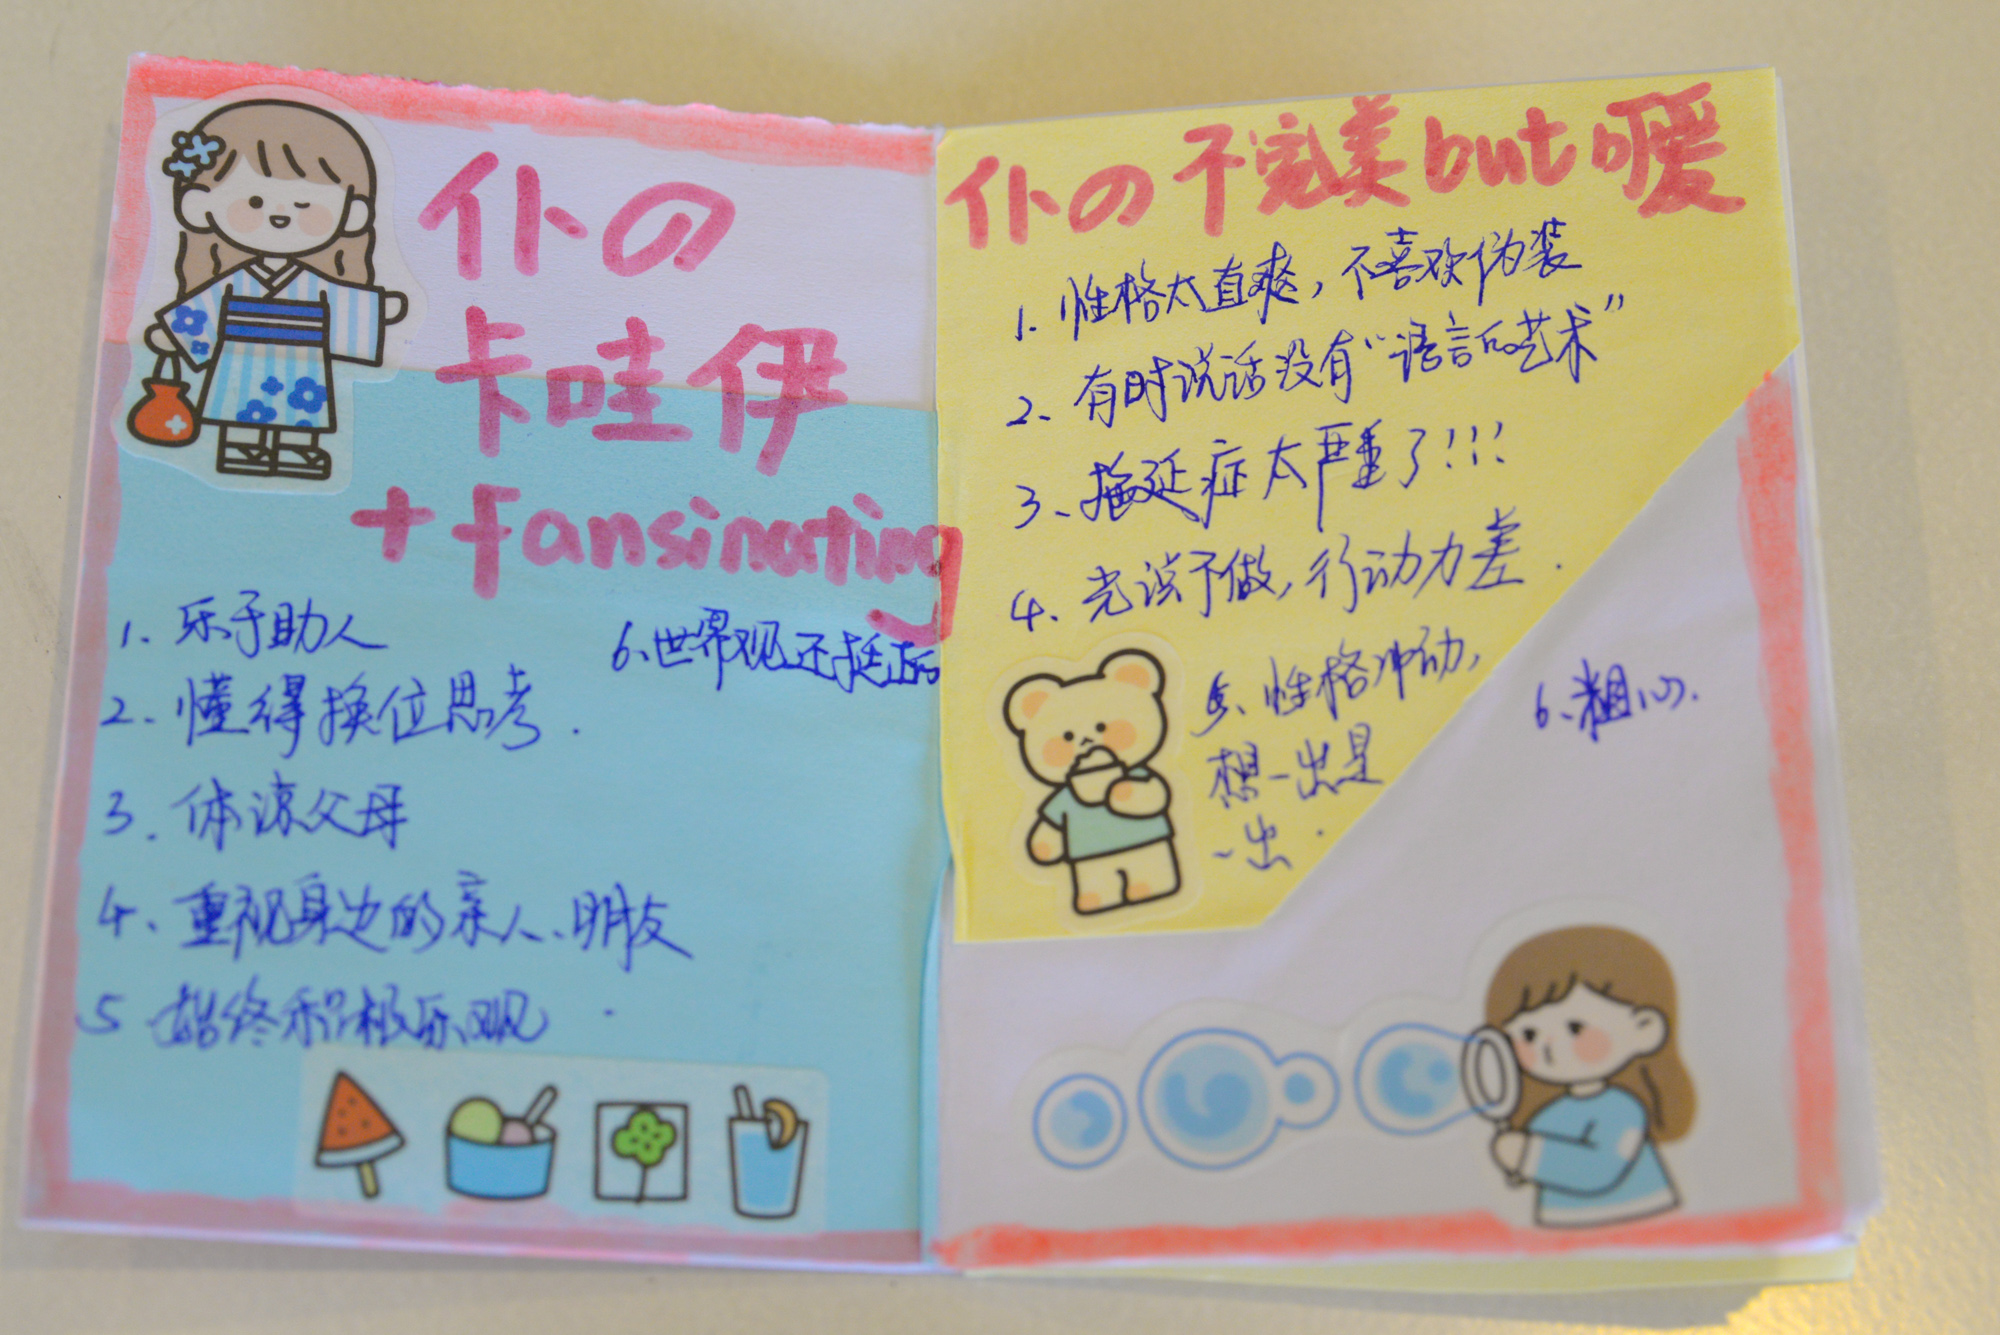 仆の
卡哇伊
+fansinating
1. 乐于助人
2. 懂得换位思考.
3. 体谅父母
4、重视身边的亲人、朋友
5 始终积极乐观.
6、世界观还挺正的
仆の不完美but暖
1. 性格太直爽，不喜欢伪装
2、有时说话没有“语言的艺术”
3、拖延症太严重了!!!
4、光说不做，行动力差.
5、性格冲动，
想一出是
一出.
6、粗心.